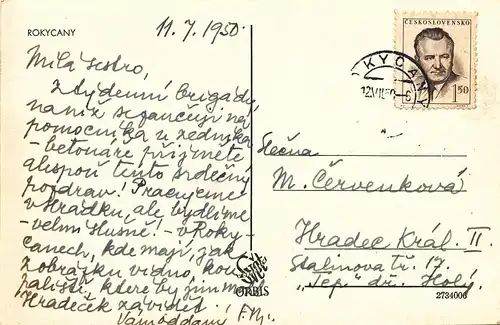 ROKYCANY
11. 7. 1950.
Milá sestro,
z týdenní brigády,
na níž se zaučuji na
pomocníka u zedníka
-betonáře přijměte
alespoň tento srdečný
pozdrav! Pracujeme
v Hrádku, ale bydlíme
-velmi slušně! - v Roky-
canech, kde mají, jak
z obrázku vidno, kou-
paliště, které by jim i
Hradeček záviděl!
Vám oddaný
ČESKOSLOVENSKO
1.50
ROKYCANY
12.VII.50-6
Slečna
M. Červenková
Hradec Král. II
Stalinova tř. 17
"Tep" dr. Holý.
ORBIS
2734006